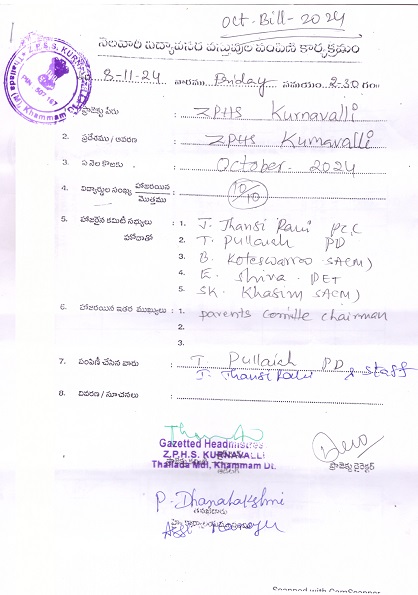 Oct-Bill-2024
నెలవారీ నిత్యావసర వస్తువుల పంపిణీ కార్యక్రమం
Z.P.S.S. KURNAVALLI
507 167
8-11-24 వారము Friday సమయం 2-30 గం
ప్రాజెక్టు పేరు : ZPHS Kurnavalli
2. ప్రదేశము / ఆవరణ : ZPHS Kurnavalli
3. ఏ నెల కొరకు : October - 2024
4. విద్యార్థుల సంఖ్య హాజరయిన / మొత్తము : 10/10
5. హాజరైన కమిటీ సభ్యులు : 1. J. Jhansi Rani
2. T. Pullaiah PD
3. B. Koteswarroo SACM)
4. E. Shiva - PET
5. SK. Khasim SACM)
6. హాజరయిన ఇతర ముఖ్యులు : 1. parents chairman
2.
3.
7. పంపిణీ చేసిన వారు : T. Pullaiah PD
J. Jhansi Rani & Staff
8. వివరణ / సూచనలు :
Gazetted Headmistress
Z.P.H.S. KURNAVALLI
Thallada Mdl, Khammam Dt.
ప్రాజెక్టు డైరెక్టర్
P. Dhanalakshmi
Scanned with CamScanner